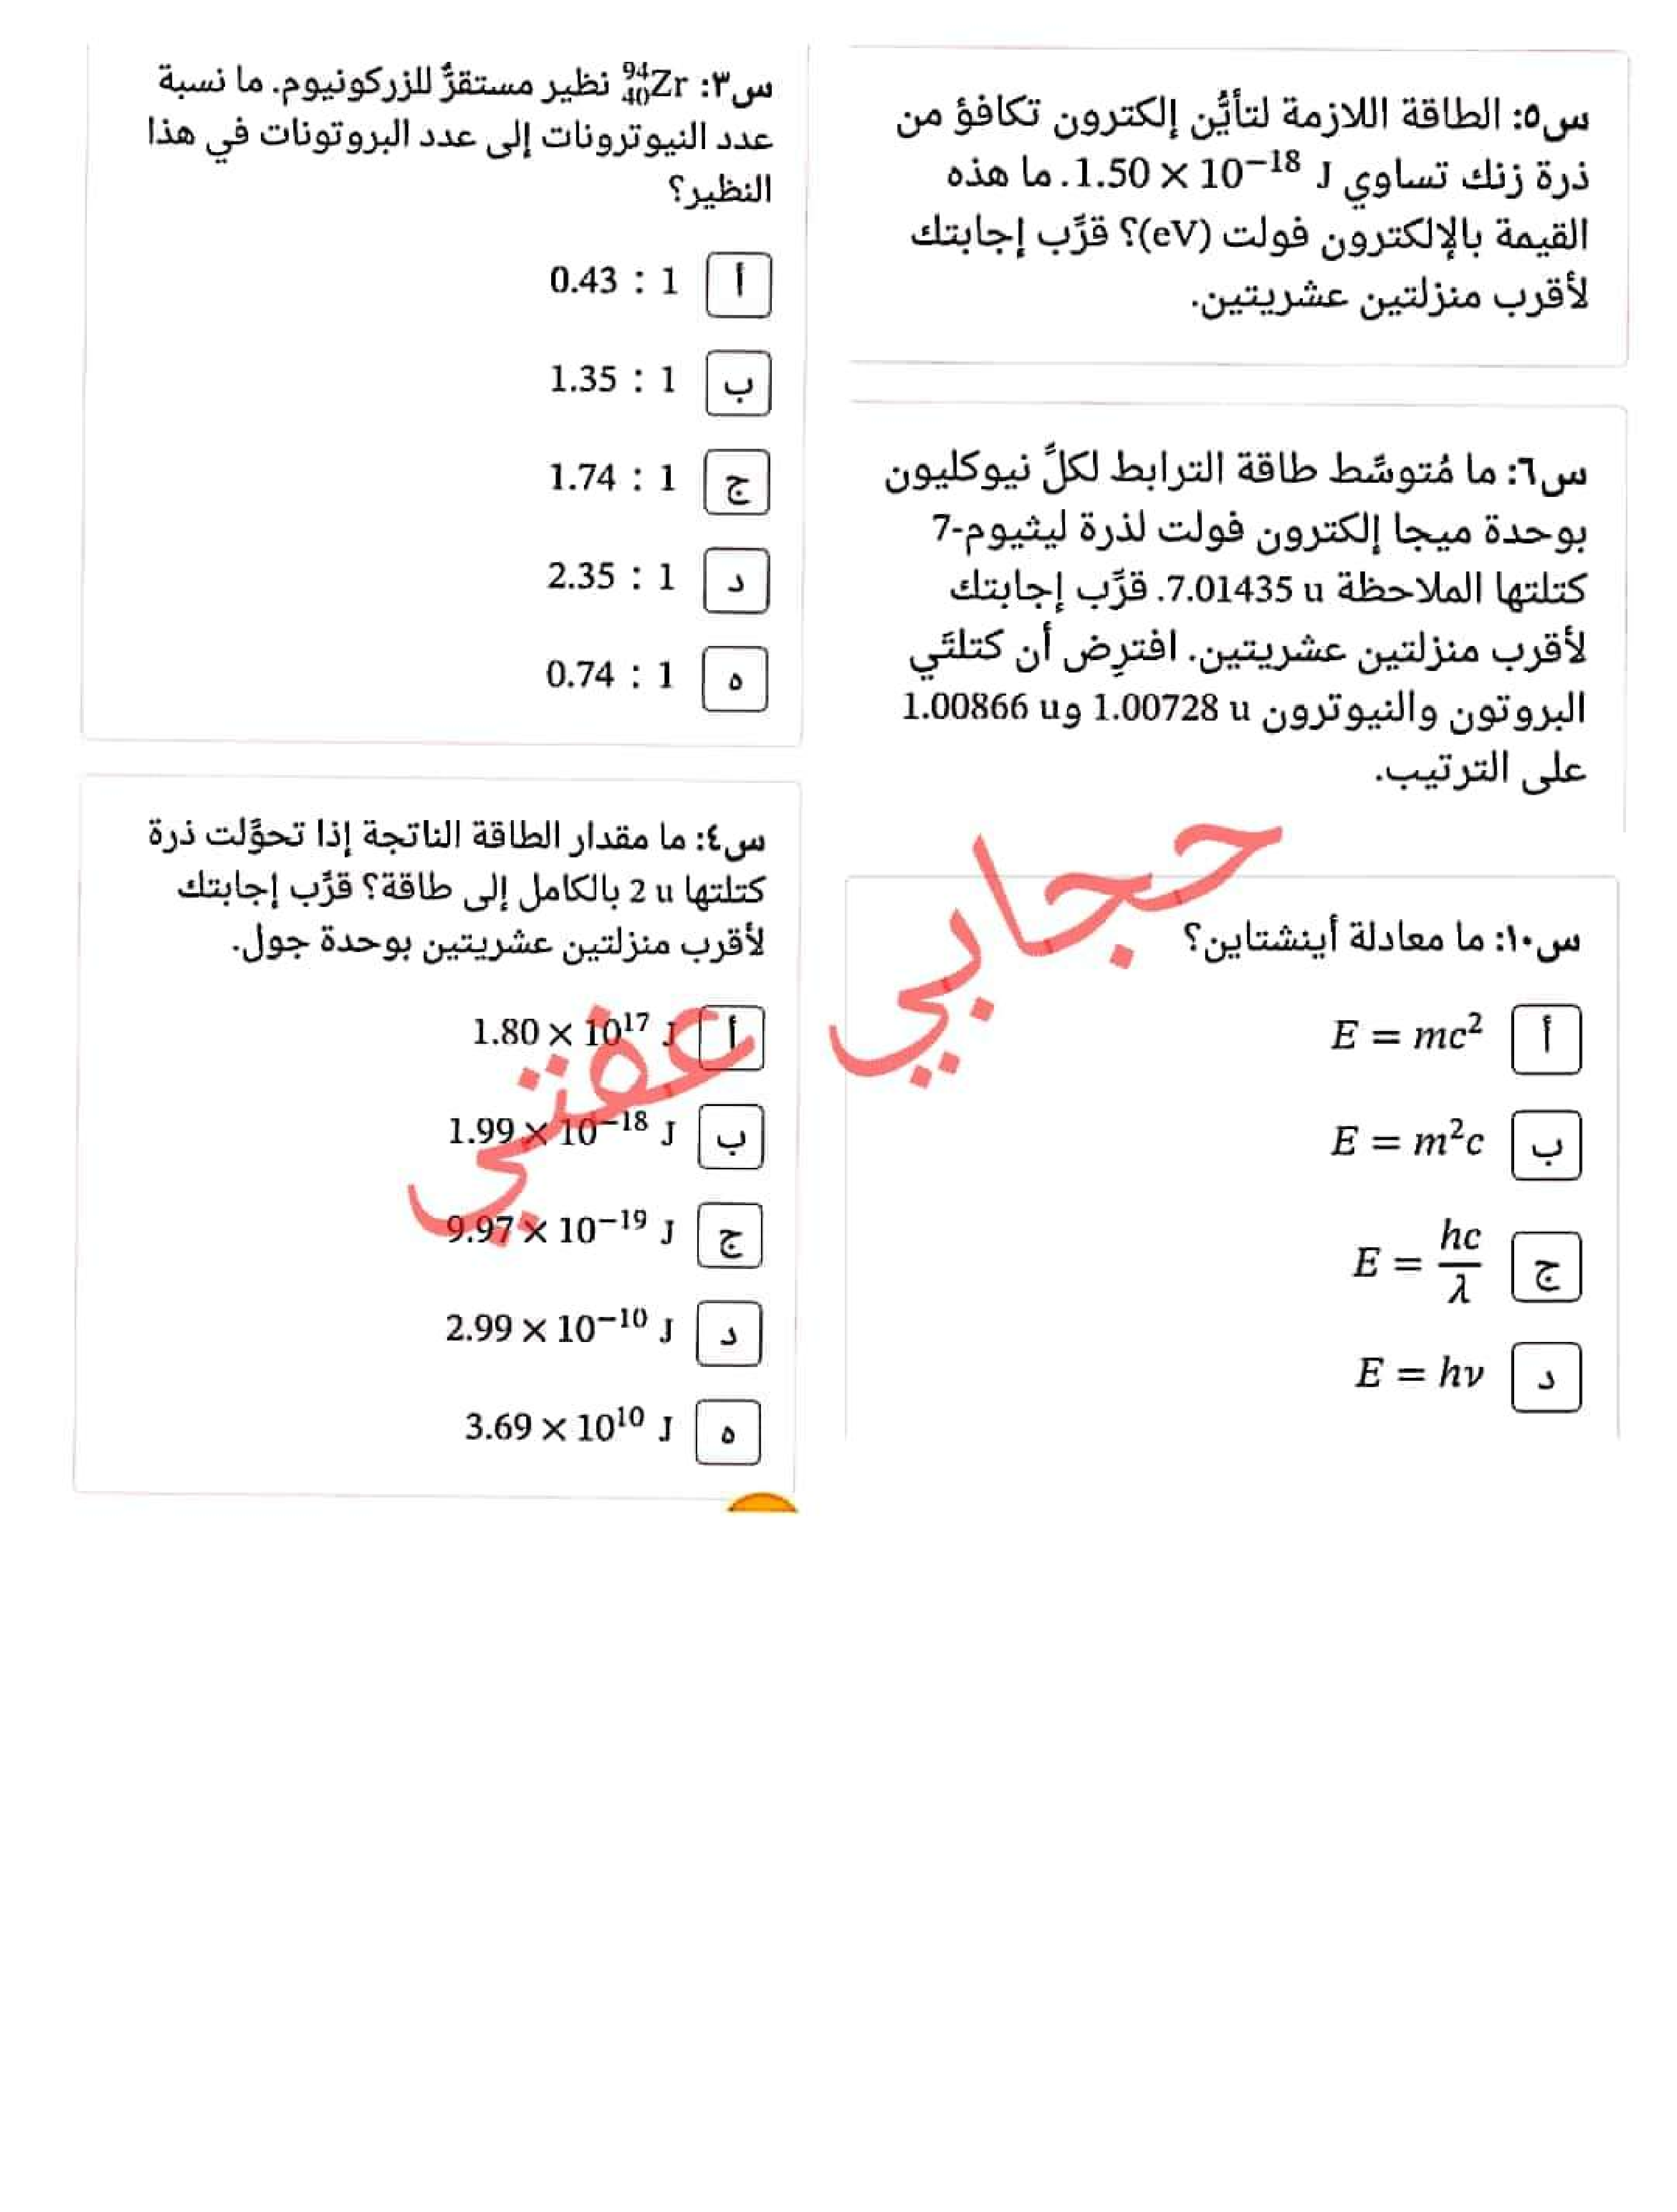 س٥: الطاقة اللازمة لتأيُّن إلكترون تكافؤ من
ذرة زنك تساوي 1.50 × 10⁻¹⁸ J. ما هذه
القيمة بالإلكترون فولت (eV)؟ قرِّب إجابتك
لأقرب منزلتين عشريتين.
س٦: ما مُتوسِّط طاقة الترابط لكلِّ نيوكليون
بوحدة ميجا إلكترون فولت لذرة ليثيوم-7
كتلتها الملاحظة 7.01435 u. قرِّب إجابتك
لأقرب منزلتين عشريتين. افترِض أن كتلتَي
البروتون والنيوترون 1.00728 u و1.00866 u
على الترتيب.
س١٠: ما معادلة أينشتاين؟
أ E = mc²
ب E = m²c
ج E = hc/λ
د E = hν
س٣: ⁹⁴₄₀Zr نظير مستقرٌّ للزركونيوم. ما نسبة
عدد النيوترونات إلى عدد البروتونات في هذا
النظير؟
أ 0.43 : 1
ب 1.35 : 1
ج 1.74 : 1
د 2.35 : 1
ه 0.74 : 1
س٤: ما مقدار الطاقة الناتجة إذا تحوَّلت ذرة
كتلتها 2 u بالكامل إلى طاقة؟ قرِّب إجابتك
لأقرب منزلتين عشريتين بوحدة جول.
أ 1.80 × 10¹⁷ J
ب 1.99 × 10⁻¹⁸ J
ج 9.97 × 10⁻¹⁹ J
د 2.99 × 10⁻¹⁰ J
ه 3.69 × 10¹⁰ J
حجابي عفتي